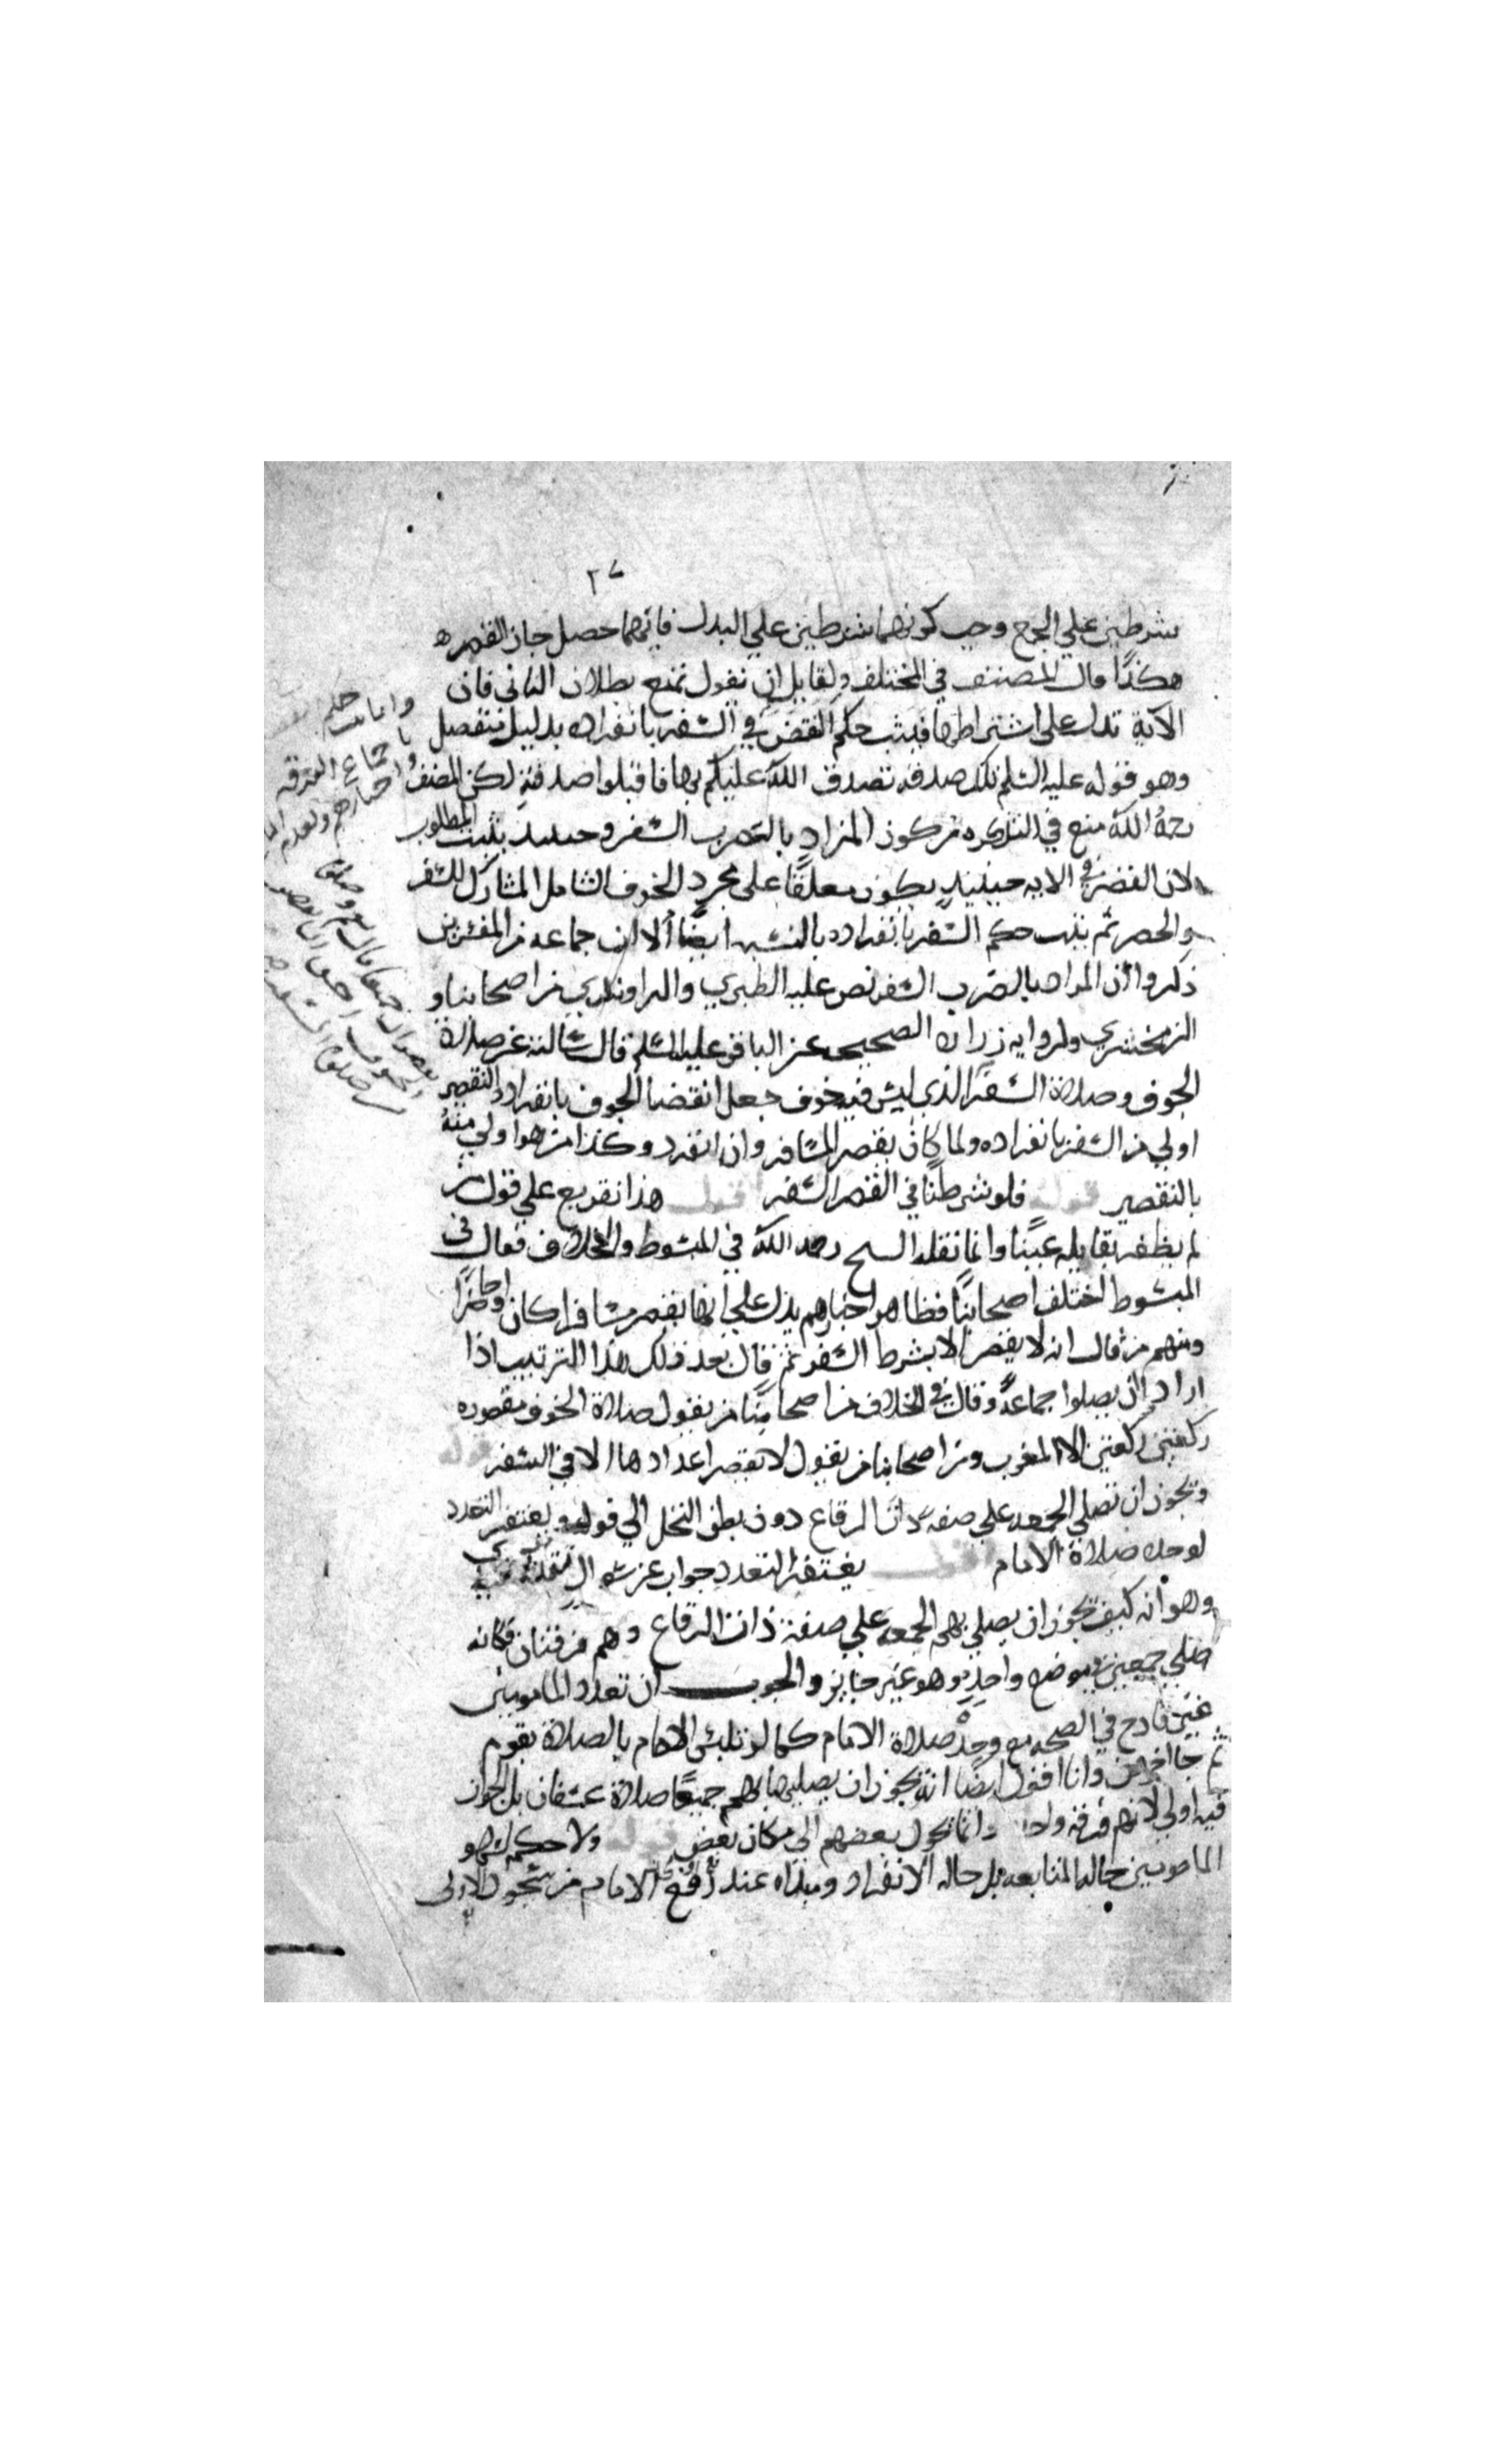 ٢٧
شرطين علي الجمع وجب كونهما شرطين علي البدل فايهما حصل جاز القصر ه
هكذا قال المصنف في المختلف ولقايل ان يقول نمنع بطلان الثاني فان
الآية تدل على اشتراطهما فيثبت حكم القصر في السفر بانفراده بدليل منفصل
وهو قوله عليه السلم تلك صدقه تصدق الله عليكم بها فاقبلوا صدقته لكن المصنف
رحمه الله منع في التذكره من كون المراد بالضرب السفر وحينيذ يثبت المطلوب
لان القصر في الايه حينيذ يكون معلقا على مجرد الخوف الشامل المشارك للسفر
والحضر ثم يثبت حكم السفر بانفراده بالنسبه ايضا الا ان جماعه من المفسرين
ذكروا ان المراد بالضرب السفر نص عليه الطبري والراوندي من اصحابنا و
الزمخشري ولروايه زراره الصحيحه عن الباقر عليه السلم قال سالته عن صلاة
الخوف وصلاة السفر الذي ليس فيه خوف جعل اقتضا الخوف بانفراده التقصير
اولي من السفر بانفراده ولما كان يقصر المسافر وان انفرد وكذا من هو اولي منه
بالتقصير قوله فلو شرطنا في القصر السفر اقول هذا تفريع علي قول من
لم يظفر بقايله عينا وانما نقله الشيخ رحمه الله في المبسوط والخلاف فقال في
المبسوط اختلف اصحابنا فظاهر اخبارهم يدل علي انها تقصر مسافرا كان او حاضرا
ومنهم من قال انه لا يقصر الا بشرط السفر ثم قال بعد ذلك هذا الترتيب اذا
ارادوا ان يصلوا جماعة وقال في الخلاف من اصحابنا من يقول صلاة الخوف مقصوره
ركعتين ركعتين الا المغرب ومن اصحابنا من يقول لا تقصر اعدادها الا في السفر قوله
ويجوز ان تصلي الجمعه علي صفه ذات الرقاع دون بطن النخل الي قوله ويغتفر التعدد
لوحدة صلاة الامام اقول يغتفر التعدد جواب عن سوال
وهو انه كيف يجوز ان يصلي بهم الجمعه علي صفة ذات الرقاع وهم فرقتان فكانه
صلي جمعتين في موضع واحد وهو غير جايز والجواب ان تعدد المامومين
غير قادح في الصحه مع وحدة صلاة الامام كما لو تلبس الامام بالصلاة بقوم
ثم جا اخرون وانا اقول ايضا انه يجوز ان يصليها بهم جميعا صلاة عسفان بل الجواز
فيه اولي لانهم فرقه واحدة وانما تحول بعضهم الي مكان بعض قوله ولا حكم لسهو
المامومين حاله المتابعه بل حاله الانفراد ومبداه عند رفع الامام من سجود الاولى
وانما حكم
باجماع الفرقه
واخبارهم